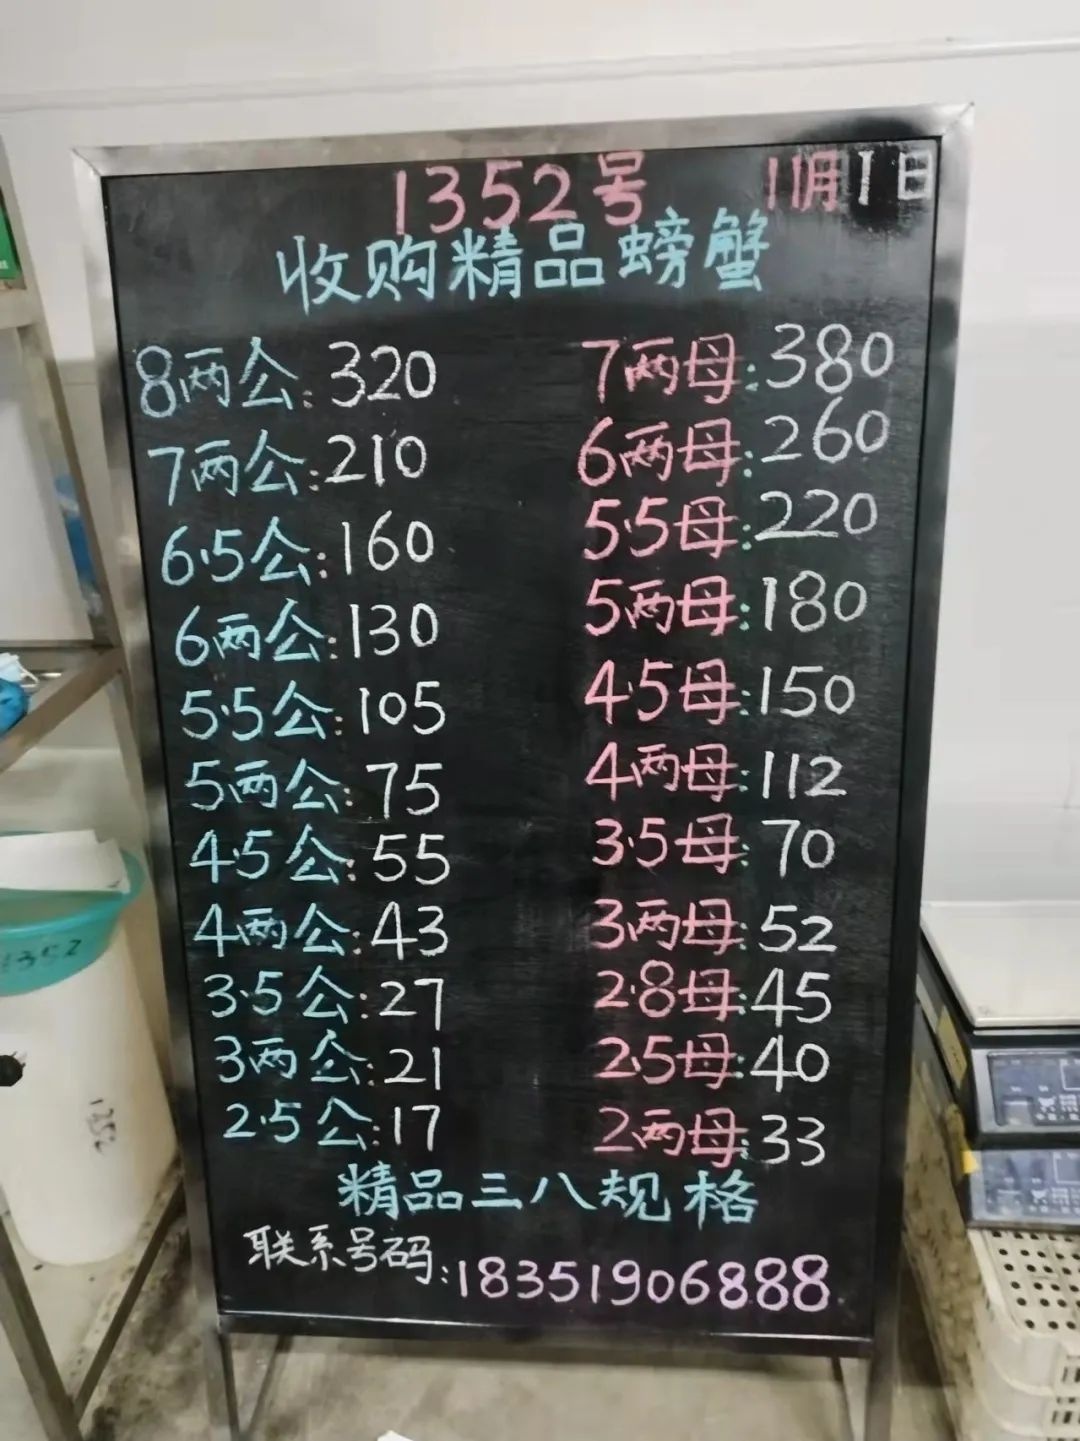 1352号 11月1日
收购精品螃蟹
8两公:320 7两母:380
7两公:210 6两母:260
6.5公:160 5.5母:220
6两公:130 5两母:180
5.5公:105 4.5母:150
5两公:75 4两母:112
4.5公:55 3.5母:70
4两公:43 3两母:52
3.5公:27 2.8母:45
3两公:21 2.5母:40
2.5公:17 2两母:33
精品三八规格
联系号码:18351906888
1352
1352